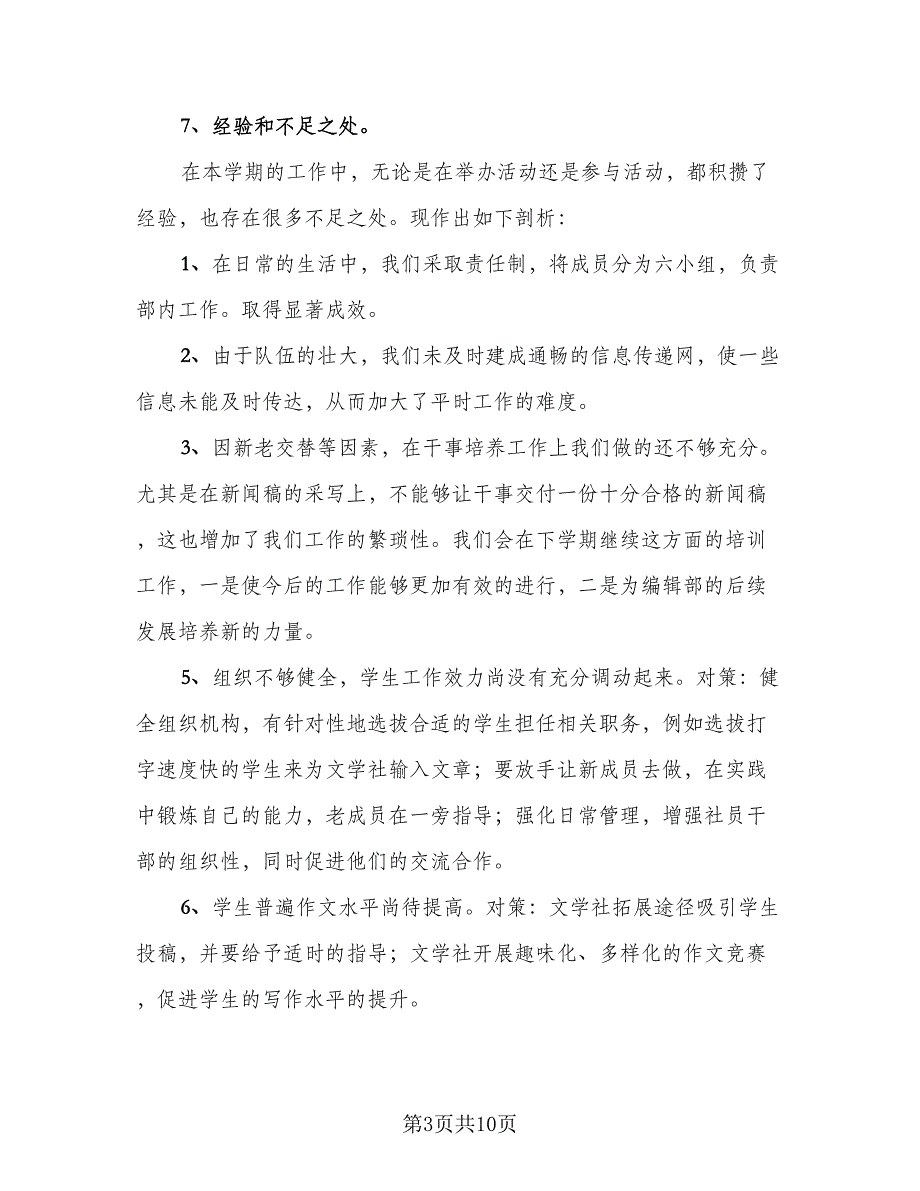 7、经验和不足之处。
在本学期的工作中，无论是在举办活动还是参与活动，都积攒了
经验，也存在很多不足之处。现作出如下剖析：
1、在日常的生活中，我们采取责任制，将成员分为六小组，负责
部内工作。取得显著成效。
2、由于队伍的壮大，我们未及时建成通畅的信息传递网，使一些
信息未能及时传达，从而加大了平时工作的难度。
3、因新老交替等因素，在干事培养工作上我们做的还不够充分。
尤其是在新闻稿的采写上，不能够让干事交付一份十分合格的新闻稿
，这也增加了我们工作的繁琐性。我们会在下学期继续这方面的培训
工作，一是使今后的工作能够更加有效的进行，二是为编辑部的后续
发展培养新的力量。
5、组织不够健全，学生工作效力尚没有充分调动起来。对策：健
全组织机构，有针对性地选拔合适的学生担任相关职务，例如选拔打
字速度快的学生来为文学社输入文章；要放手让新成员去做，在实践
中锻炼自己的能力，老成员在一旁指导；强化日常管理，增强社员干
部的组织性，同时促进他们的交流合作。
6、学生普遍作文水平尚待提高。对策：文学社拓展途径吸引学生
投稿，并要给予适时的指导；文学社开展趣味化、多样化的作文竞赛
，促进学生的写作水平的提升。
第3页共10页